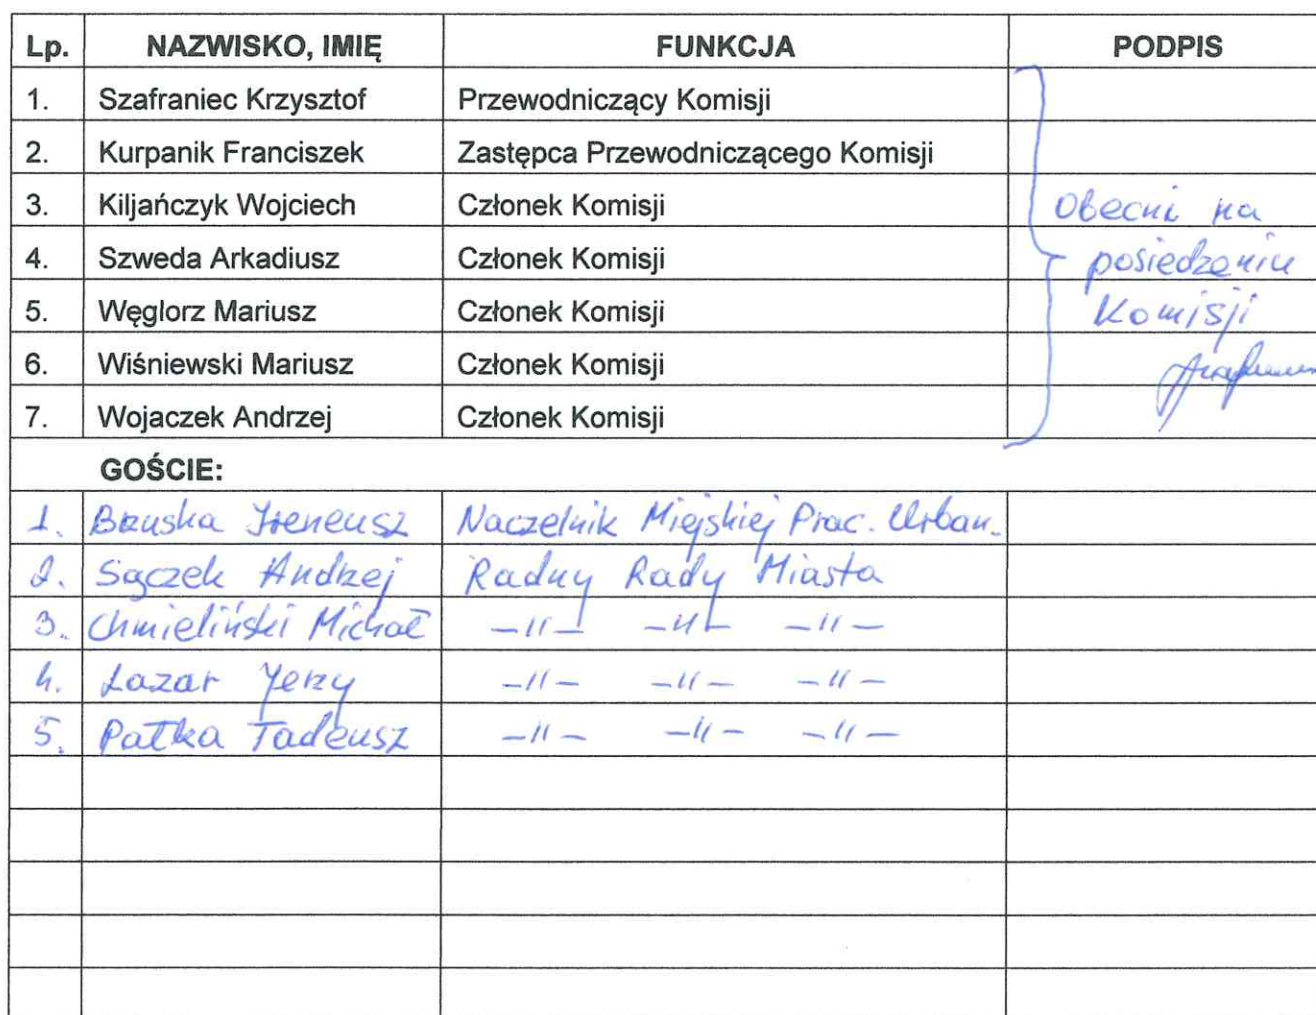 Lp. NAZWISKO, IMIĘ FUNKCJA PODPIS
1. Szafraniec Krzysztof Przewodniczący Komisji
2. Kurpanik Franciszek Zastępca Przewodniczącego Komisji
3. Kiljańczyk Wojciech Członek Komisji Obecni na
4. Szweda Arkadiusz Członek Komisji posiedzeniu
5. Węglorz Mariusz Członek Komisji Komisji
6. Wiśniewski Mariusz Członek Komisji
7. Wojaczek Andrzej Członek Komisji
GOŚCIE:
1. Ireneusz Naczelnik Miejskiej Prac. Urban.
2. Sączek Andrzej Radny Rady Miasta
3. Chmieliński Michał —〃— —〃— —〃—
4. Lazar Jerzy —〃— —〃— —〃—
5. Pałka Tadeusz —〃— —〃— —〃—